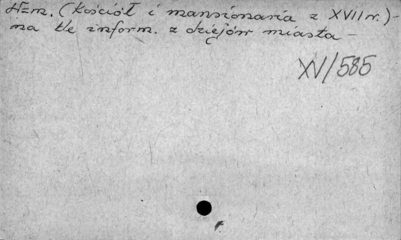 Wzm. (Kościół i mansionaria z XVII w.) -
na tle inform. z dziejów miasta -
XV/585